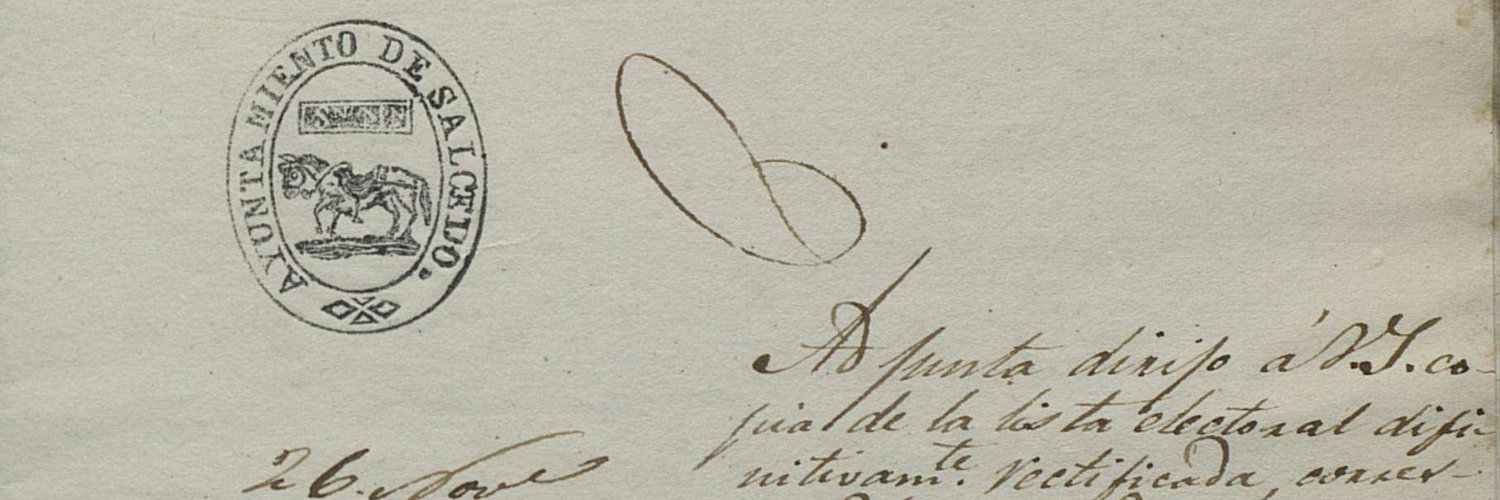 AYUNTAMIENTO DE SALCEDO.
Adjunta dirijo á V.S. co-
pia de la lista electoral difi-
nitivam.te rectificada, corres-
26. Nov.e